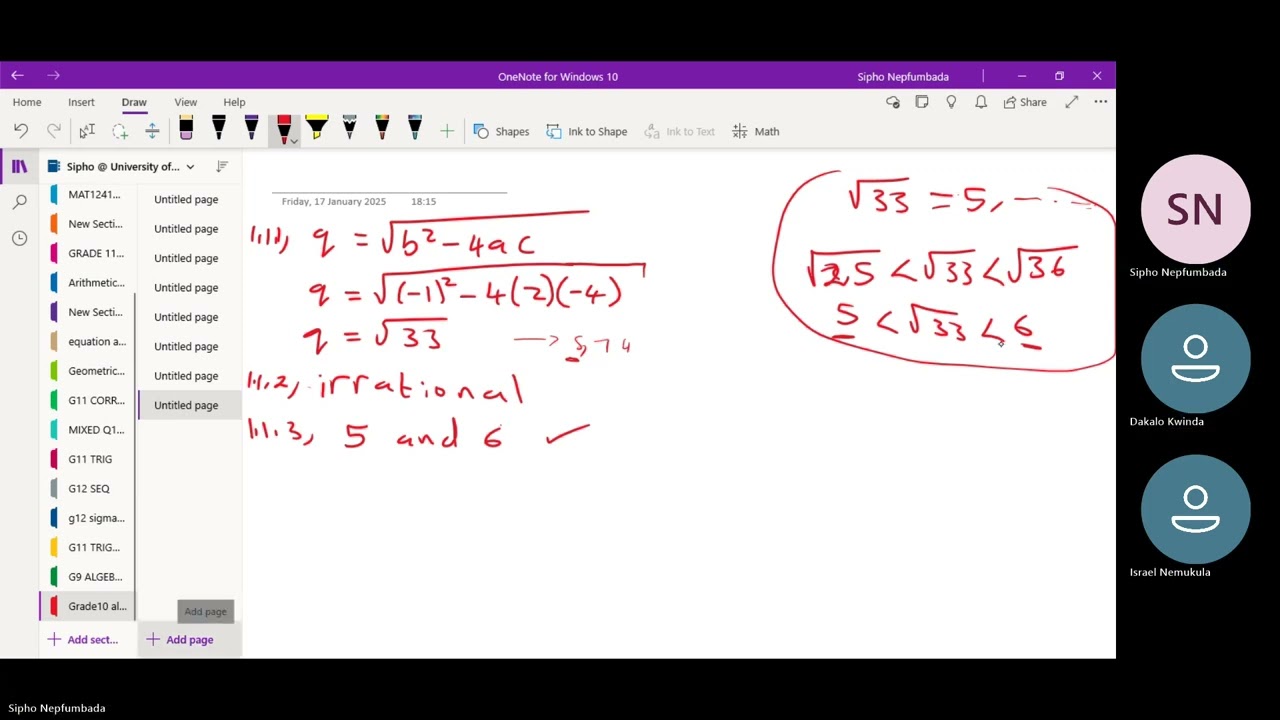 OneNote for Windows 10
Sipho Nepfumbada
Home Insert Draw View Help
Share
Shapes Ink to Shape Ink to Text Math
Sipho @ University of...
MAT1241...
New Secti...
GRADE 11...
Arithmetic...
New Secti...
equation a...
Geometric...
G11 CORR...
MIXED Q1...
G11 TRIG
G12 SEQ
g12 sigma...
G11 TRIG...
G9 ALGEB...
Grade10 al...
Add sect...
Untitled page
Untitled page
Untitled page
Untitled page
Untitled page
Untitled page
Untitled page
Untitled page
Add page
Add page
Friday, 17 January 2025 18:15
1.1.1, q = √b² - 4ac
q = √(-1)² - 4(2)(-4)
q = √33 → 5,74
1.1.2, irrational
1.1.3, 5 and 6 ✓
√33 = 5, ---
√25 < √33 < √36
5 < √33 < 6
SN
Sipho Nepfumbada
Dakalo Kwinda
Israel Nemukula
Sipho Nepfumbada